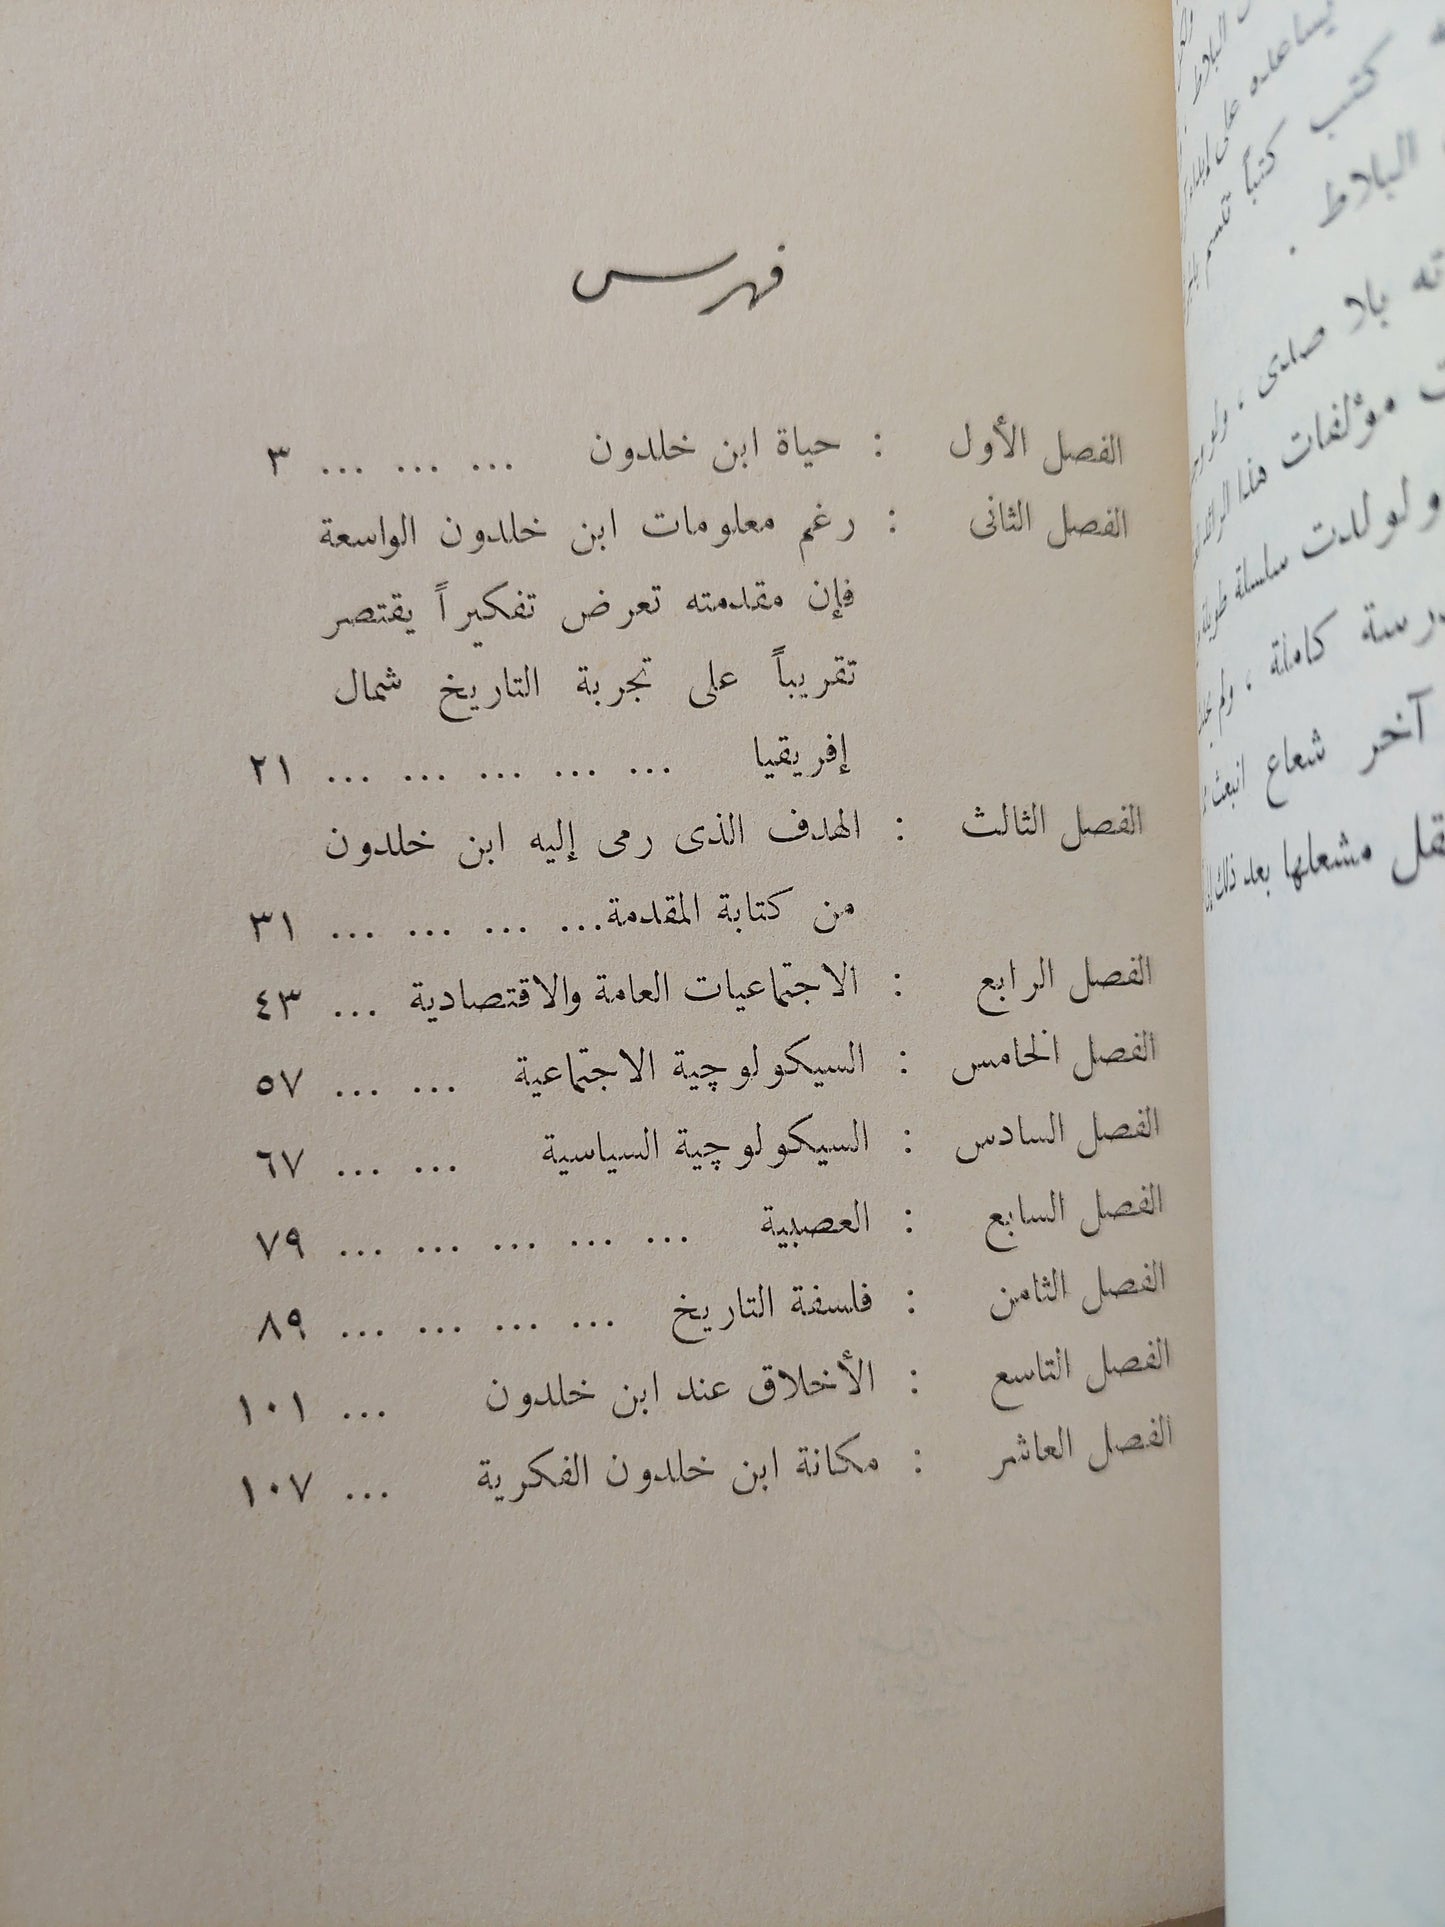 فهرس
الفصل الأول : حياة ابن خلدون ... ... ... ٣
الفصل الثانى : رغم معلومات ابن خلدون الواسعة
فإن مقدمته تعرض تفكيراً يقتصر
تقريباً على تجربة التاريخ شمال
إفريقيا ... ... ... ... ... ٢١
الفصل الثالث : الهدف الذى رمى إليه ابن خلدون
من كتابة المقدمة... ... ... ... ٣١
الفصل الرابع : الاجتماعيات العامة والاقتصادية ... ٤٣
الفصل الخامس : السيكولوچية الاجتماعية ... ... ٥٧
الفصل السادس : السيكولوچية السياسية ... ... ٦٧
الفصل السابع : العصبية ... ... ... ... ... ٧٩
الفصل الثامن : فلسفة التاريخ ... ... ... ... ٨٩
الفصل التاسع : الأخلاق عند ابن خلدون ... ١٠١
الفصل العاشر : مكانة ابن خلدون الفكرية ... ١٠٧
البلاط
يساعده على
كتب كتباً تقسم
البلاط .
بلا صدى ،
مؤلفات هذا
ولولدت سلسلة طويلة
كاملة ، ولم
آخر شعاع انبعث
مشعلها بعد ذلك